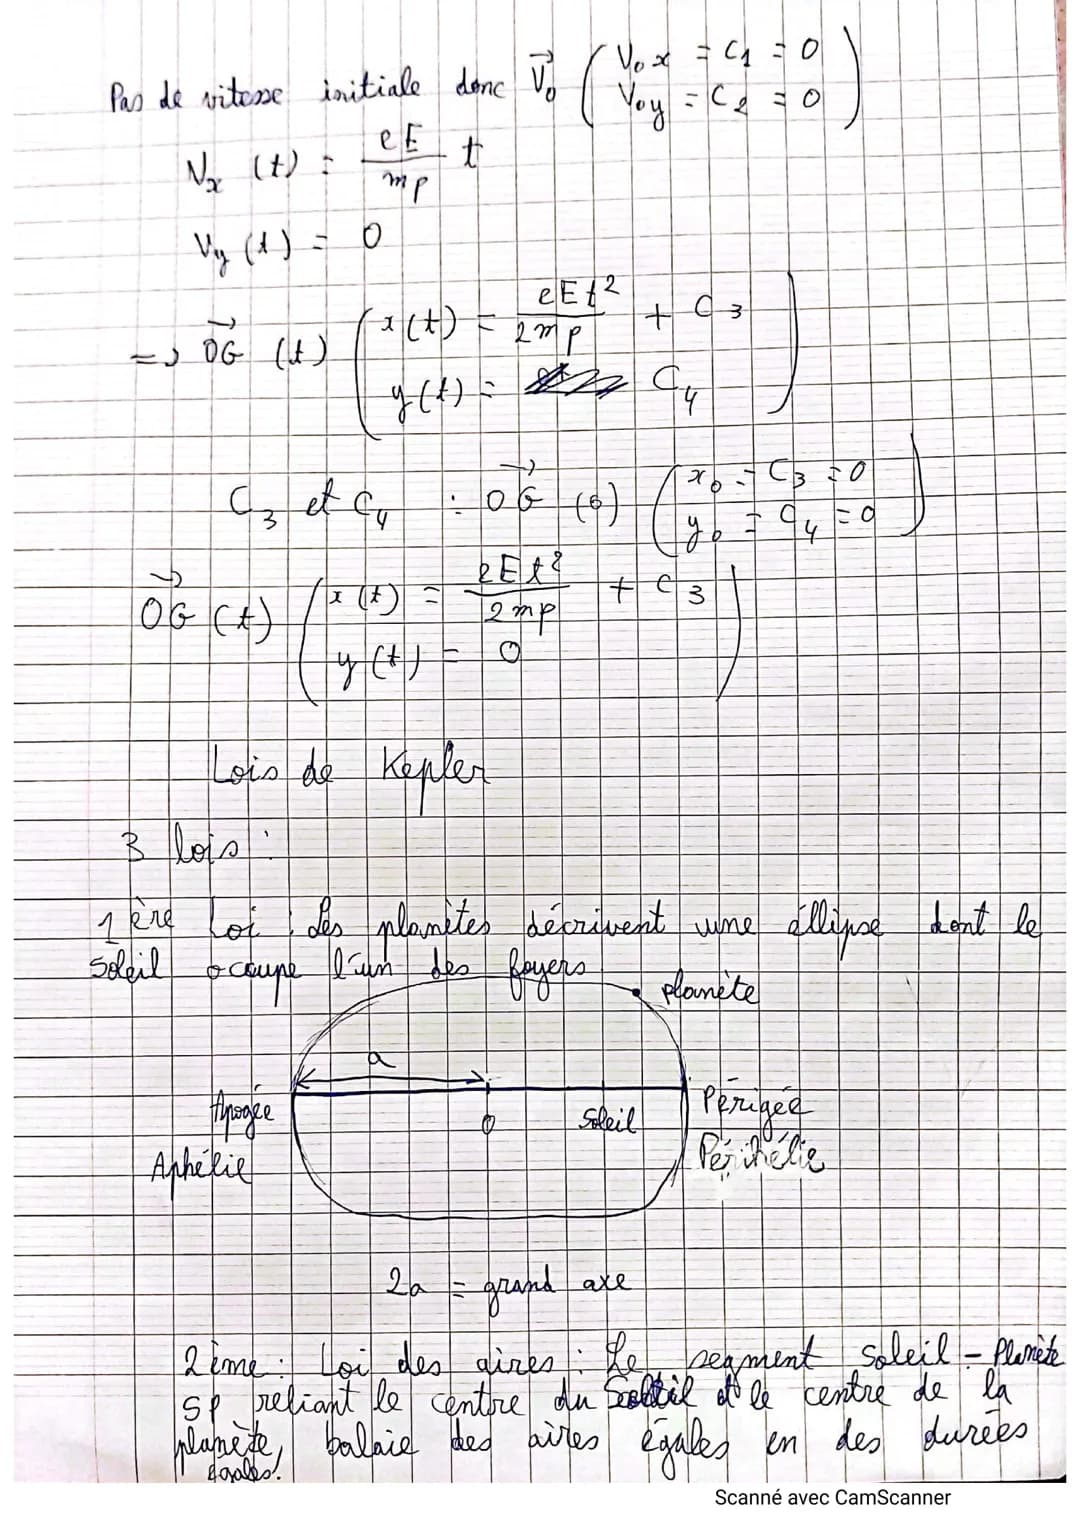 Pas de vitesse initiale donc V₀ ( V₀x = C1 = 0
V₀y = C2 = 0 )
Vx (t) = eE/mp t
Vy (t) = 0
=> OG (t) ( x(t) = eEt²/2mp + C3
y(t) = C4 )
C3 et C4 : OG (0) ( x₀ = C3 = 0
y₀ = C4 = 0 )
OG (t) ( x (t) = eEt²/2mp + C3
y (t) = 0 )
Lois de Kepler
3 lois :
1 ère Loi : Les planètes décrivent une éllipse dont le
Soleil occupe l'un des foyers
planète
a
Apogée
O
Soleil
Périgée
Aphélie
Périhélie
2a = grand axe
2 ème : Loi des aires : Le segment Soleil - Planète
SP reliant le centre du Soleil et le centre de la
planète, balaie des aires égales en des durées
égales.
Scanné avec CamScanner